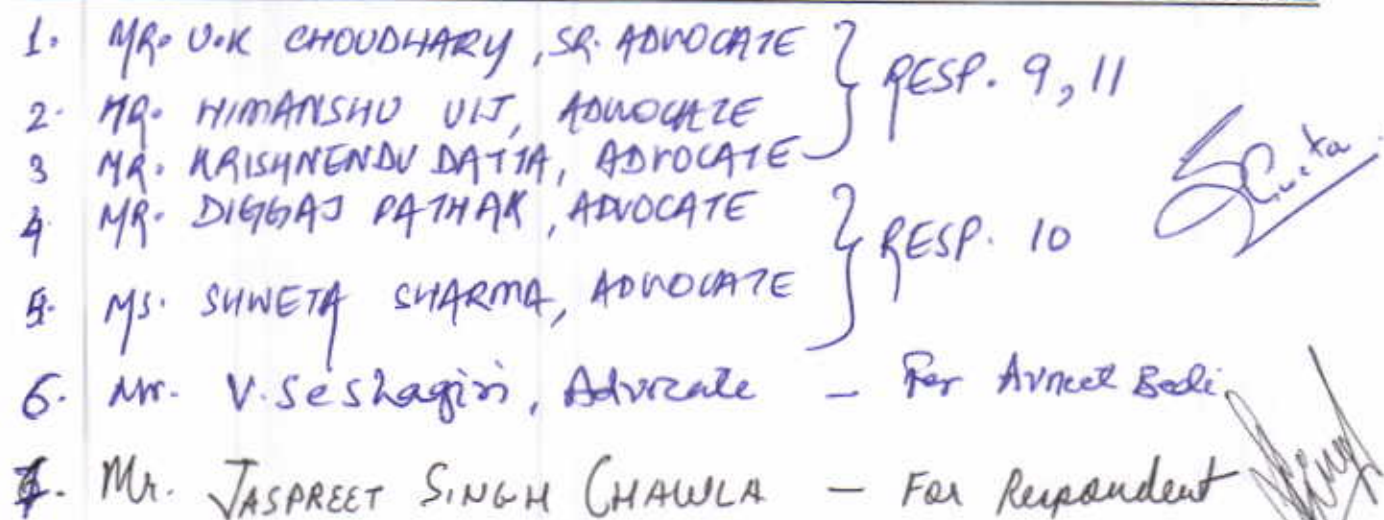 1. MR. U.K CHOUDHARY, SR. ADVOCATE
2. MR. HIMANSHU VIJ, ADVOCATE
RESP. 9, 11
3 MR. KRISHNENDU DATTA, ADVOCATE
4 MR. DIGGAJ PATHAK, ADVOCATE
RESP. 10
5. MS. SHWETA SHARMA, ADVOCATE
6. Mr. V. Seshagiri, Advocate – For Avneet Bedi
7. Mr. JASPREET SINGH CHAWLA – For Respondent